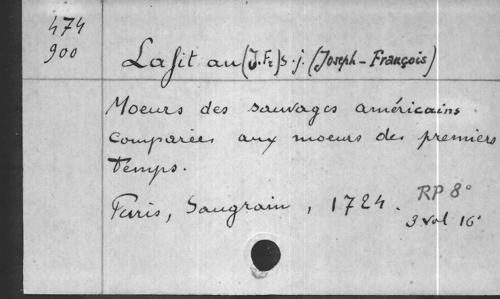 474
900
Lafit au (J. Fr) s.j. (Joseph-François)
Moeurs des sauvages américains
comparées aux moeurs des premiers
temps.
Paris, Saugrain, 1724. RP 8°
3 vol 16°